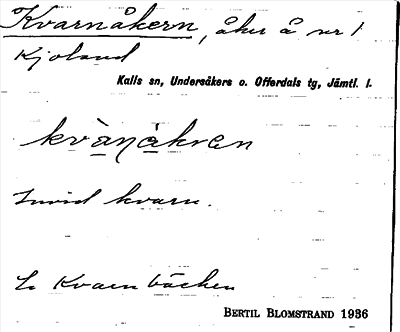 Kvarnåkern, åker å nr 1
Kjoland
Kalls sn, Undersåkers o. Offerdals tg, Jämtl. l.
kvànàkren
Invid kvarn.
Kvarnbäcken
BERTIL BLOMSTRAND 1936